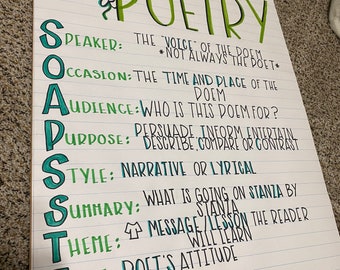 POETRY
SPEAKER: THE "VOICE" OF THE POEM
*NOT ALWAYS THE POET*
OCCASION: THE TIME AND PLACE OF THE
POEM
AUDIENCE: WHO IS THIS POEM FOR?
PURPOSE: PERSUADE INFORM ENTERTAIN
DESCRIBE COMPARE OR CONTRAST
STYLE: NARRATIVE OR LYRICAL
SUMMARY: WHAT IS GOING ON STANZA BY
STANZA
THEME: MESSAGE/LESSON THE READER
WILL LEARN
POET'S ATTITUDE